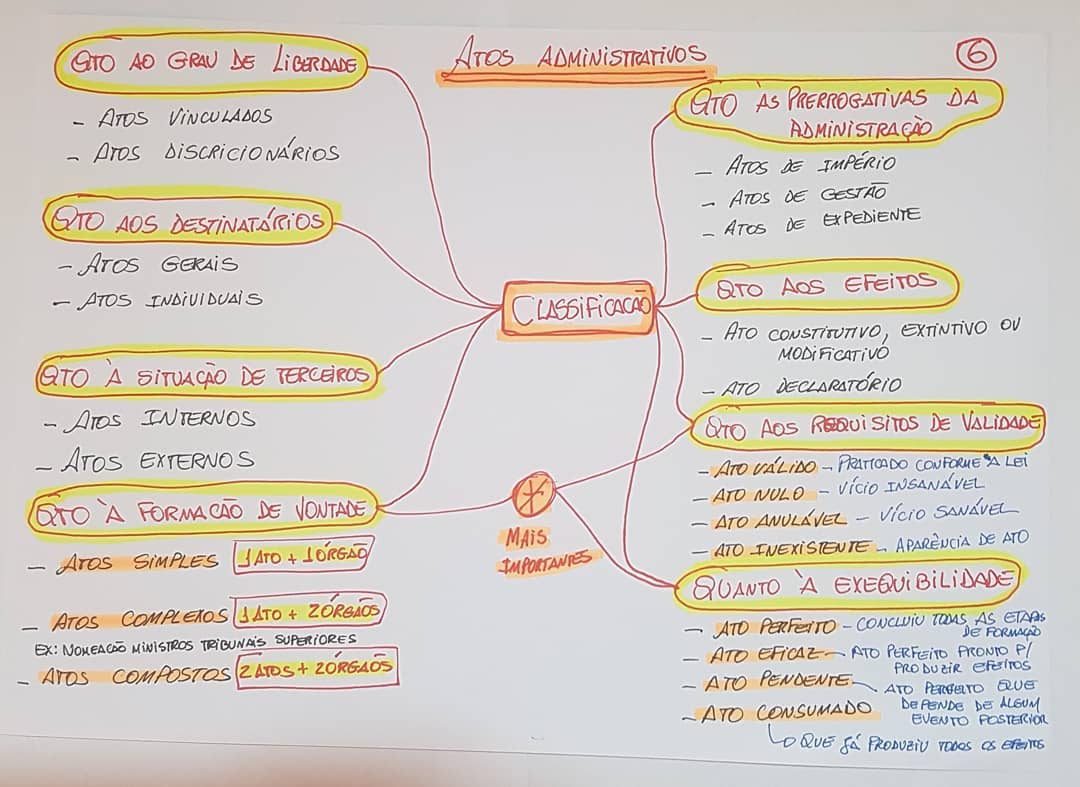 ATOS ADMINISTRATIVOS
6
QTO AO GRAU DE LIBERDADE
- ATOS VINCULADOS
- ATOS DISCRICIONÁRIOS
QTO AOS DESTINATÁRIOS
- ATOS GERAIS
- ATOS INDIVIDUAIS
QTO À SITUAÇÃO DE TERCEIROS
- ATOS INTERNOS
- ATOS EXTERNOS
QTO À FORMAÇÃO DE VONTADE
- ATOS SIMPLES 1 ATO + 1 ÓRGÃO
- ATOS COMPLEXOS 1 ATO + 2 ÓRGÃOS
EX: NOMEAÇÃO MINISTROS TRIBUNAIS SUPERIORES
- ATOS COMPOSTOS 2 ATOS + 2 ÓRGÃOS
CLASSIFICAÇÃO
*
MAIS
IMPORTANTES
QTO ÀS PRERROGATIVAS DA
ADMINISTRAÇÃO
- ATOS DE IMPÉRIO
- ATOS DE GESTÃO
- ATOS DE EXPEDIENTE
QTO AOS EFEITOS
- ATO CONSTITUTIVO, EXTINTIVO OU
MODIFICATIVO
- ATO DECLARATÓRIO
QTO AOS REQUISITOS DE VALIDADE
- ATO VÁLIDO - PRATICADO CONFORME A LEI
- ATO NULO - VÍCIO INSANÁVEL
- ATO ANULÁVEL - VÍCIO SANÁVEL
- ATO INEXISTENTE - APARÊNCIA DE ATO
QUANTO À EXEQUIBILIDADE
- ATO PERFEITO - CONCLUIU TODAS AS ETAPAS
DE FORMAÇÃO
- ATO EFICAZ - ATO PERFEITO PRONTO P/
PRODUZIR EFEITOS
- ATO PENDENTE - ATO PERFEITO QUE
DEPENDE DE ALGUM
EVENTO POSTERIOR
- ATO CONSUMADO
O QUE JÁ PRODUZIU TODOS OS EFEITOS